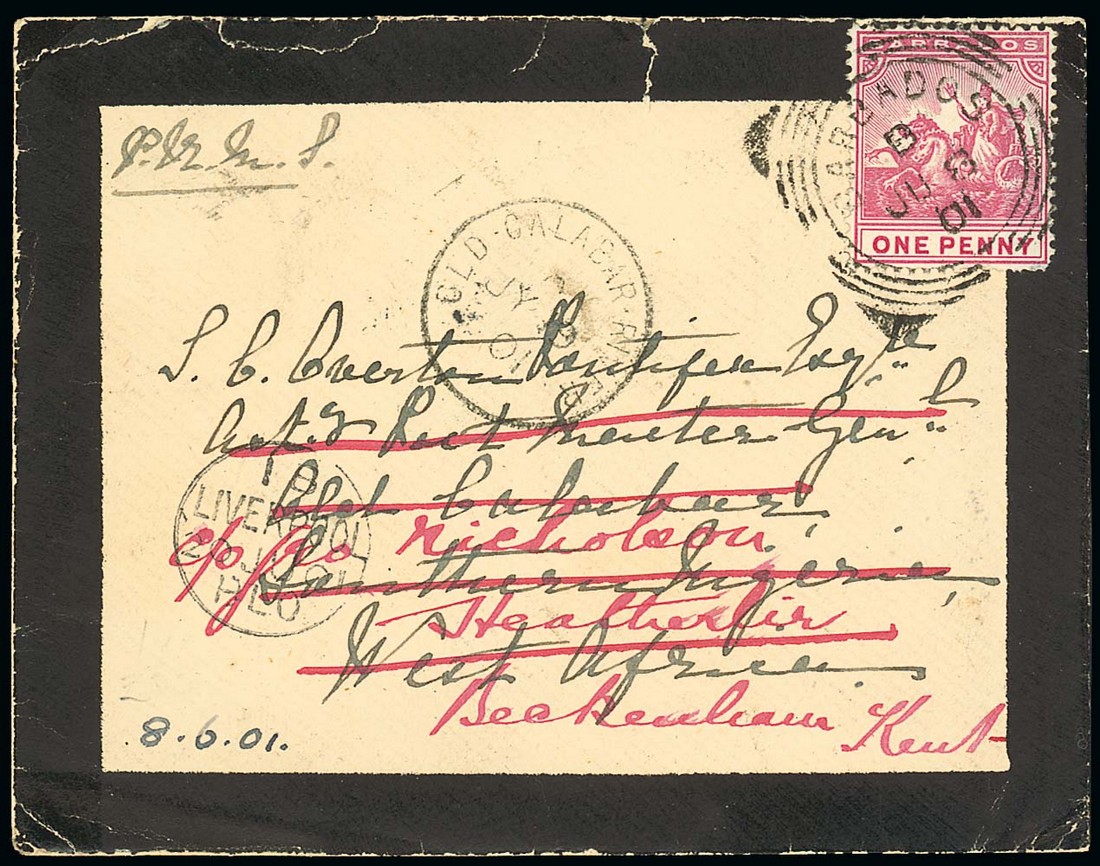 P. R. M. S.
BARBADOS
ONE PENNY
BARBADOS
B
JU 8
01
OLD·CALABAR·RIVER
JY
01
S. C. Overton Pontifex Esqre
Post Master Genl
Old Calabar
10
LIVERPOOL
JY 01
RLO
c/o Nicholson
Southern Nigeria
Heatherfir
West Africa
Beckenham Kent
8.6.01.